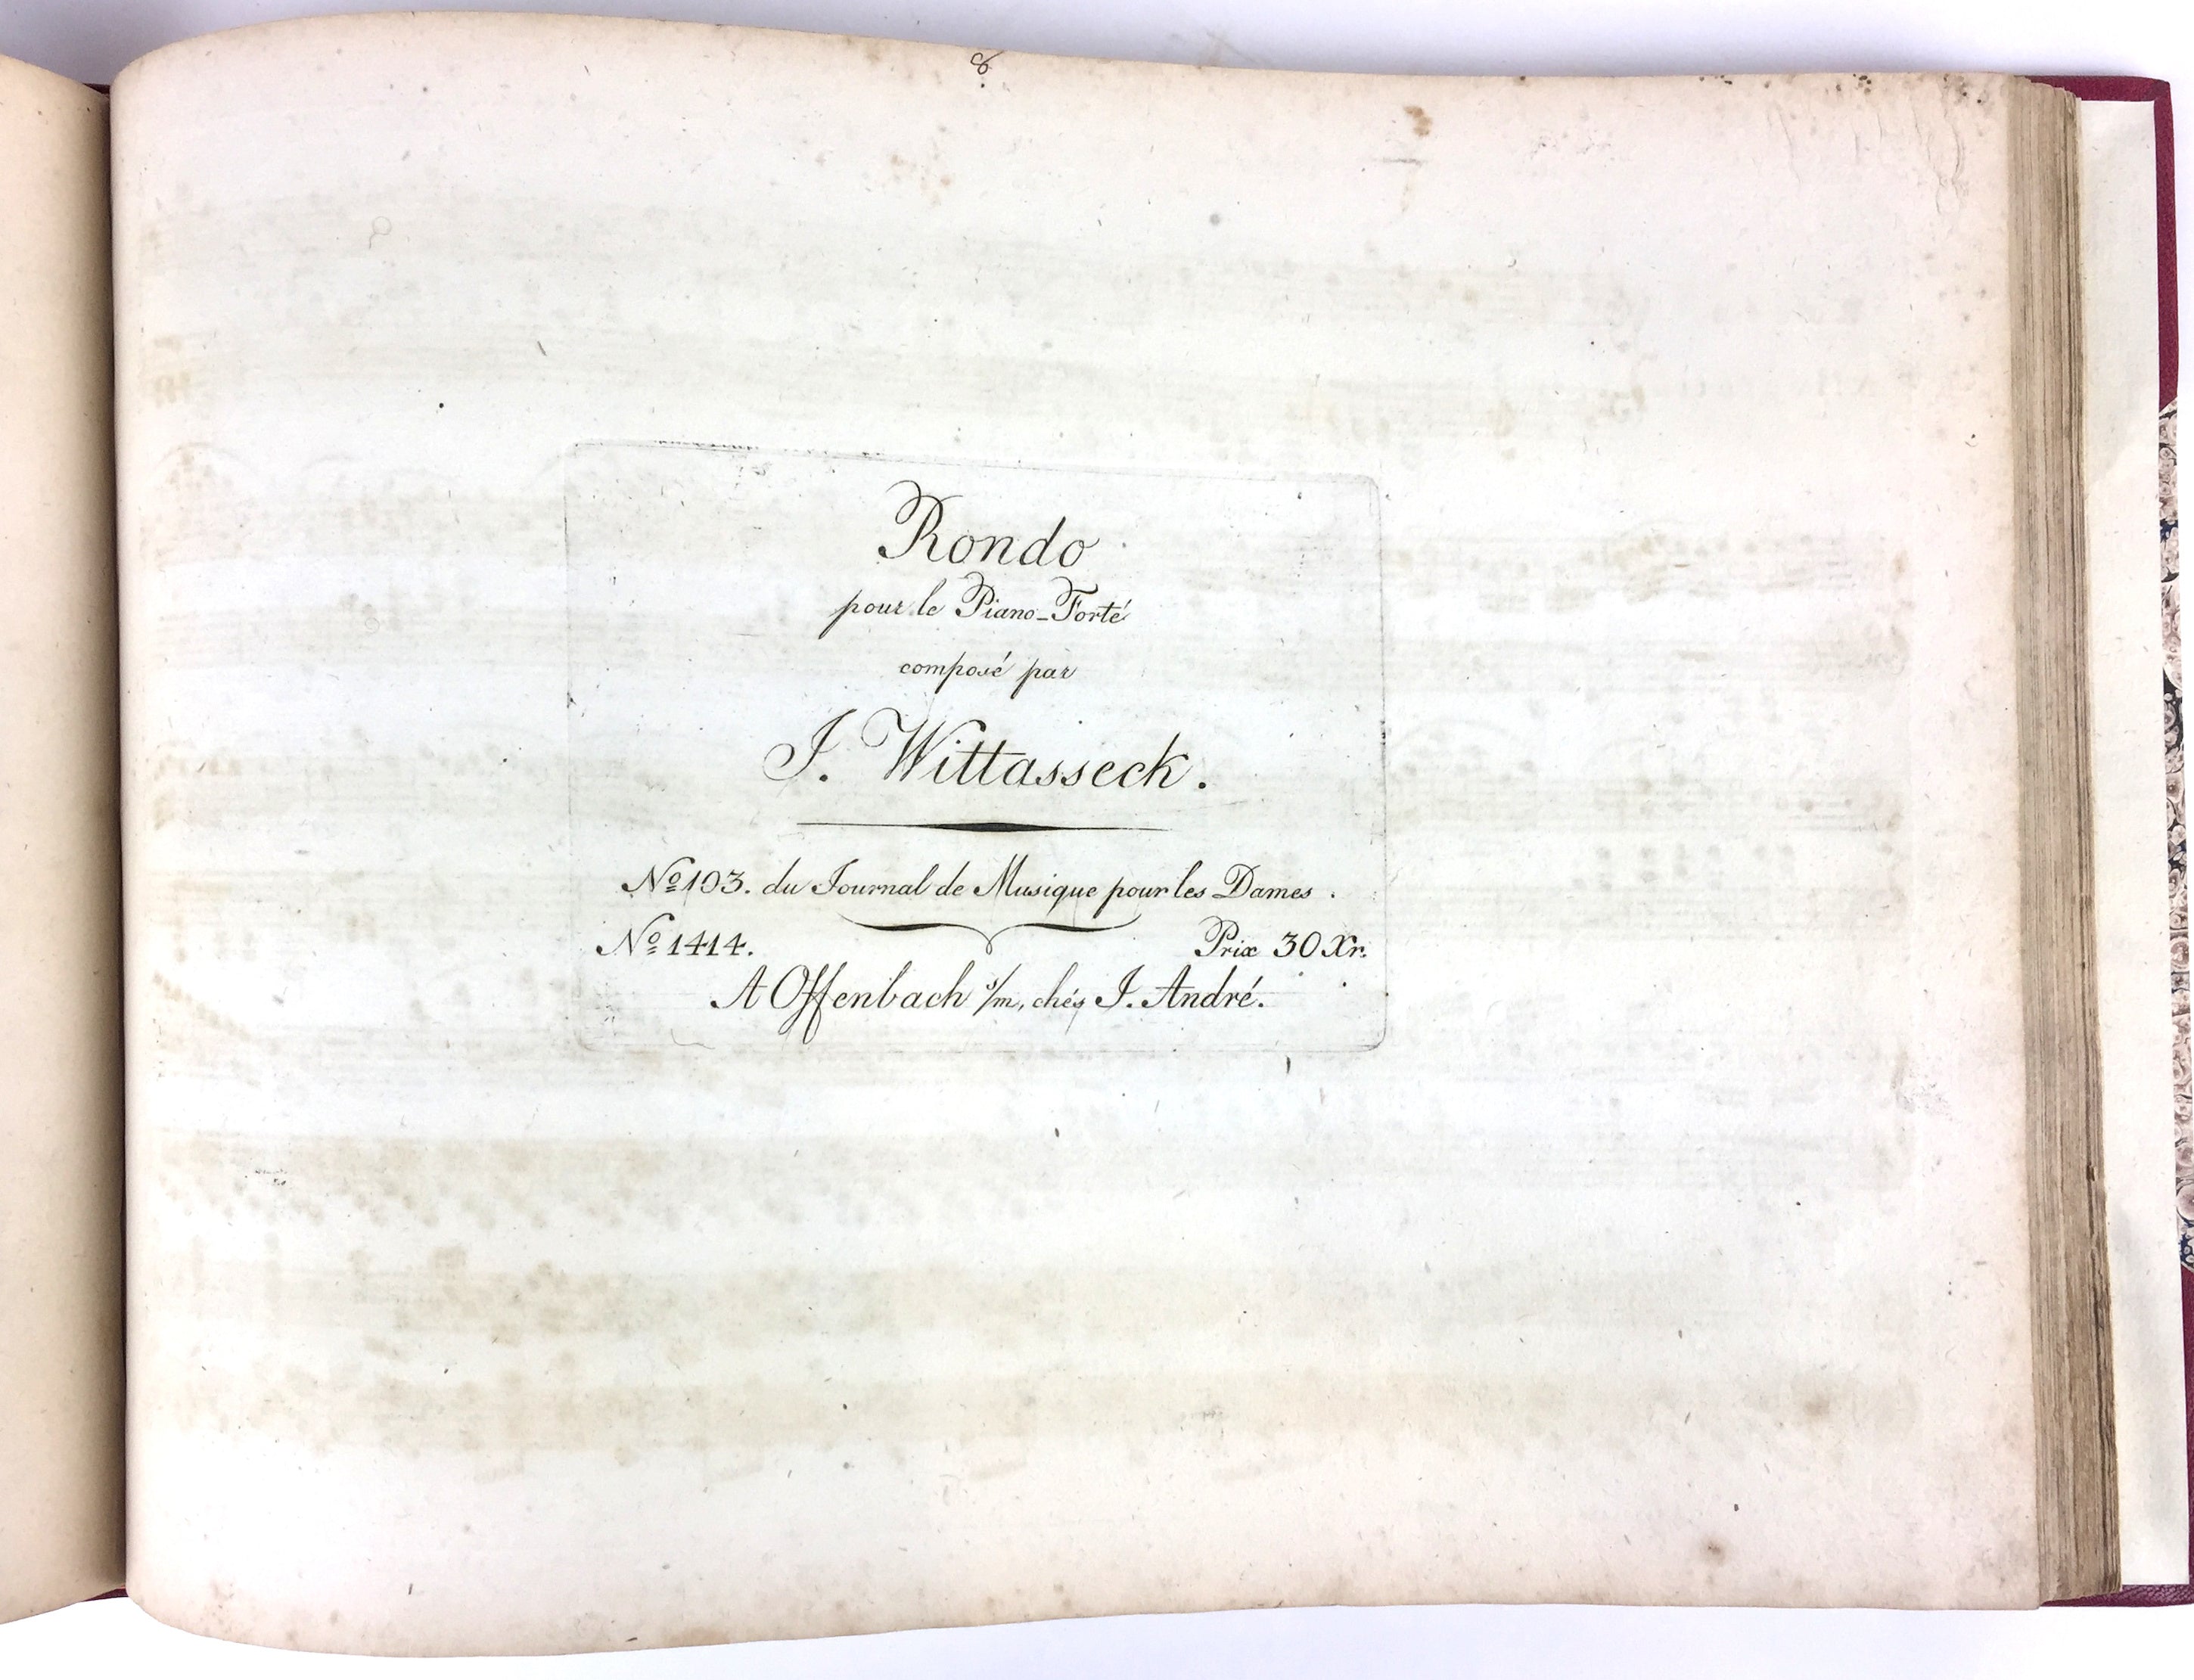 8
Rondo
pour le Piano-Forté
composé par
J. Wittasseck.
Nº 103. du Journal de Musique pour les Dames.
Nº 1414. Prix 30 Xr.
A Offenbach s/m, chés J. André.